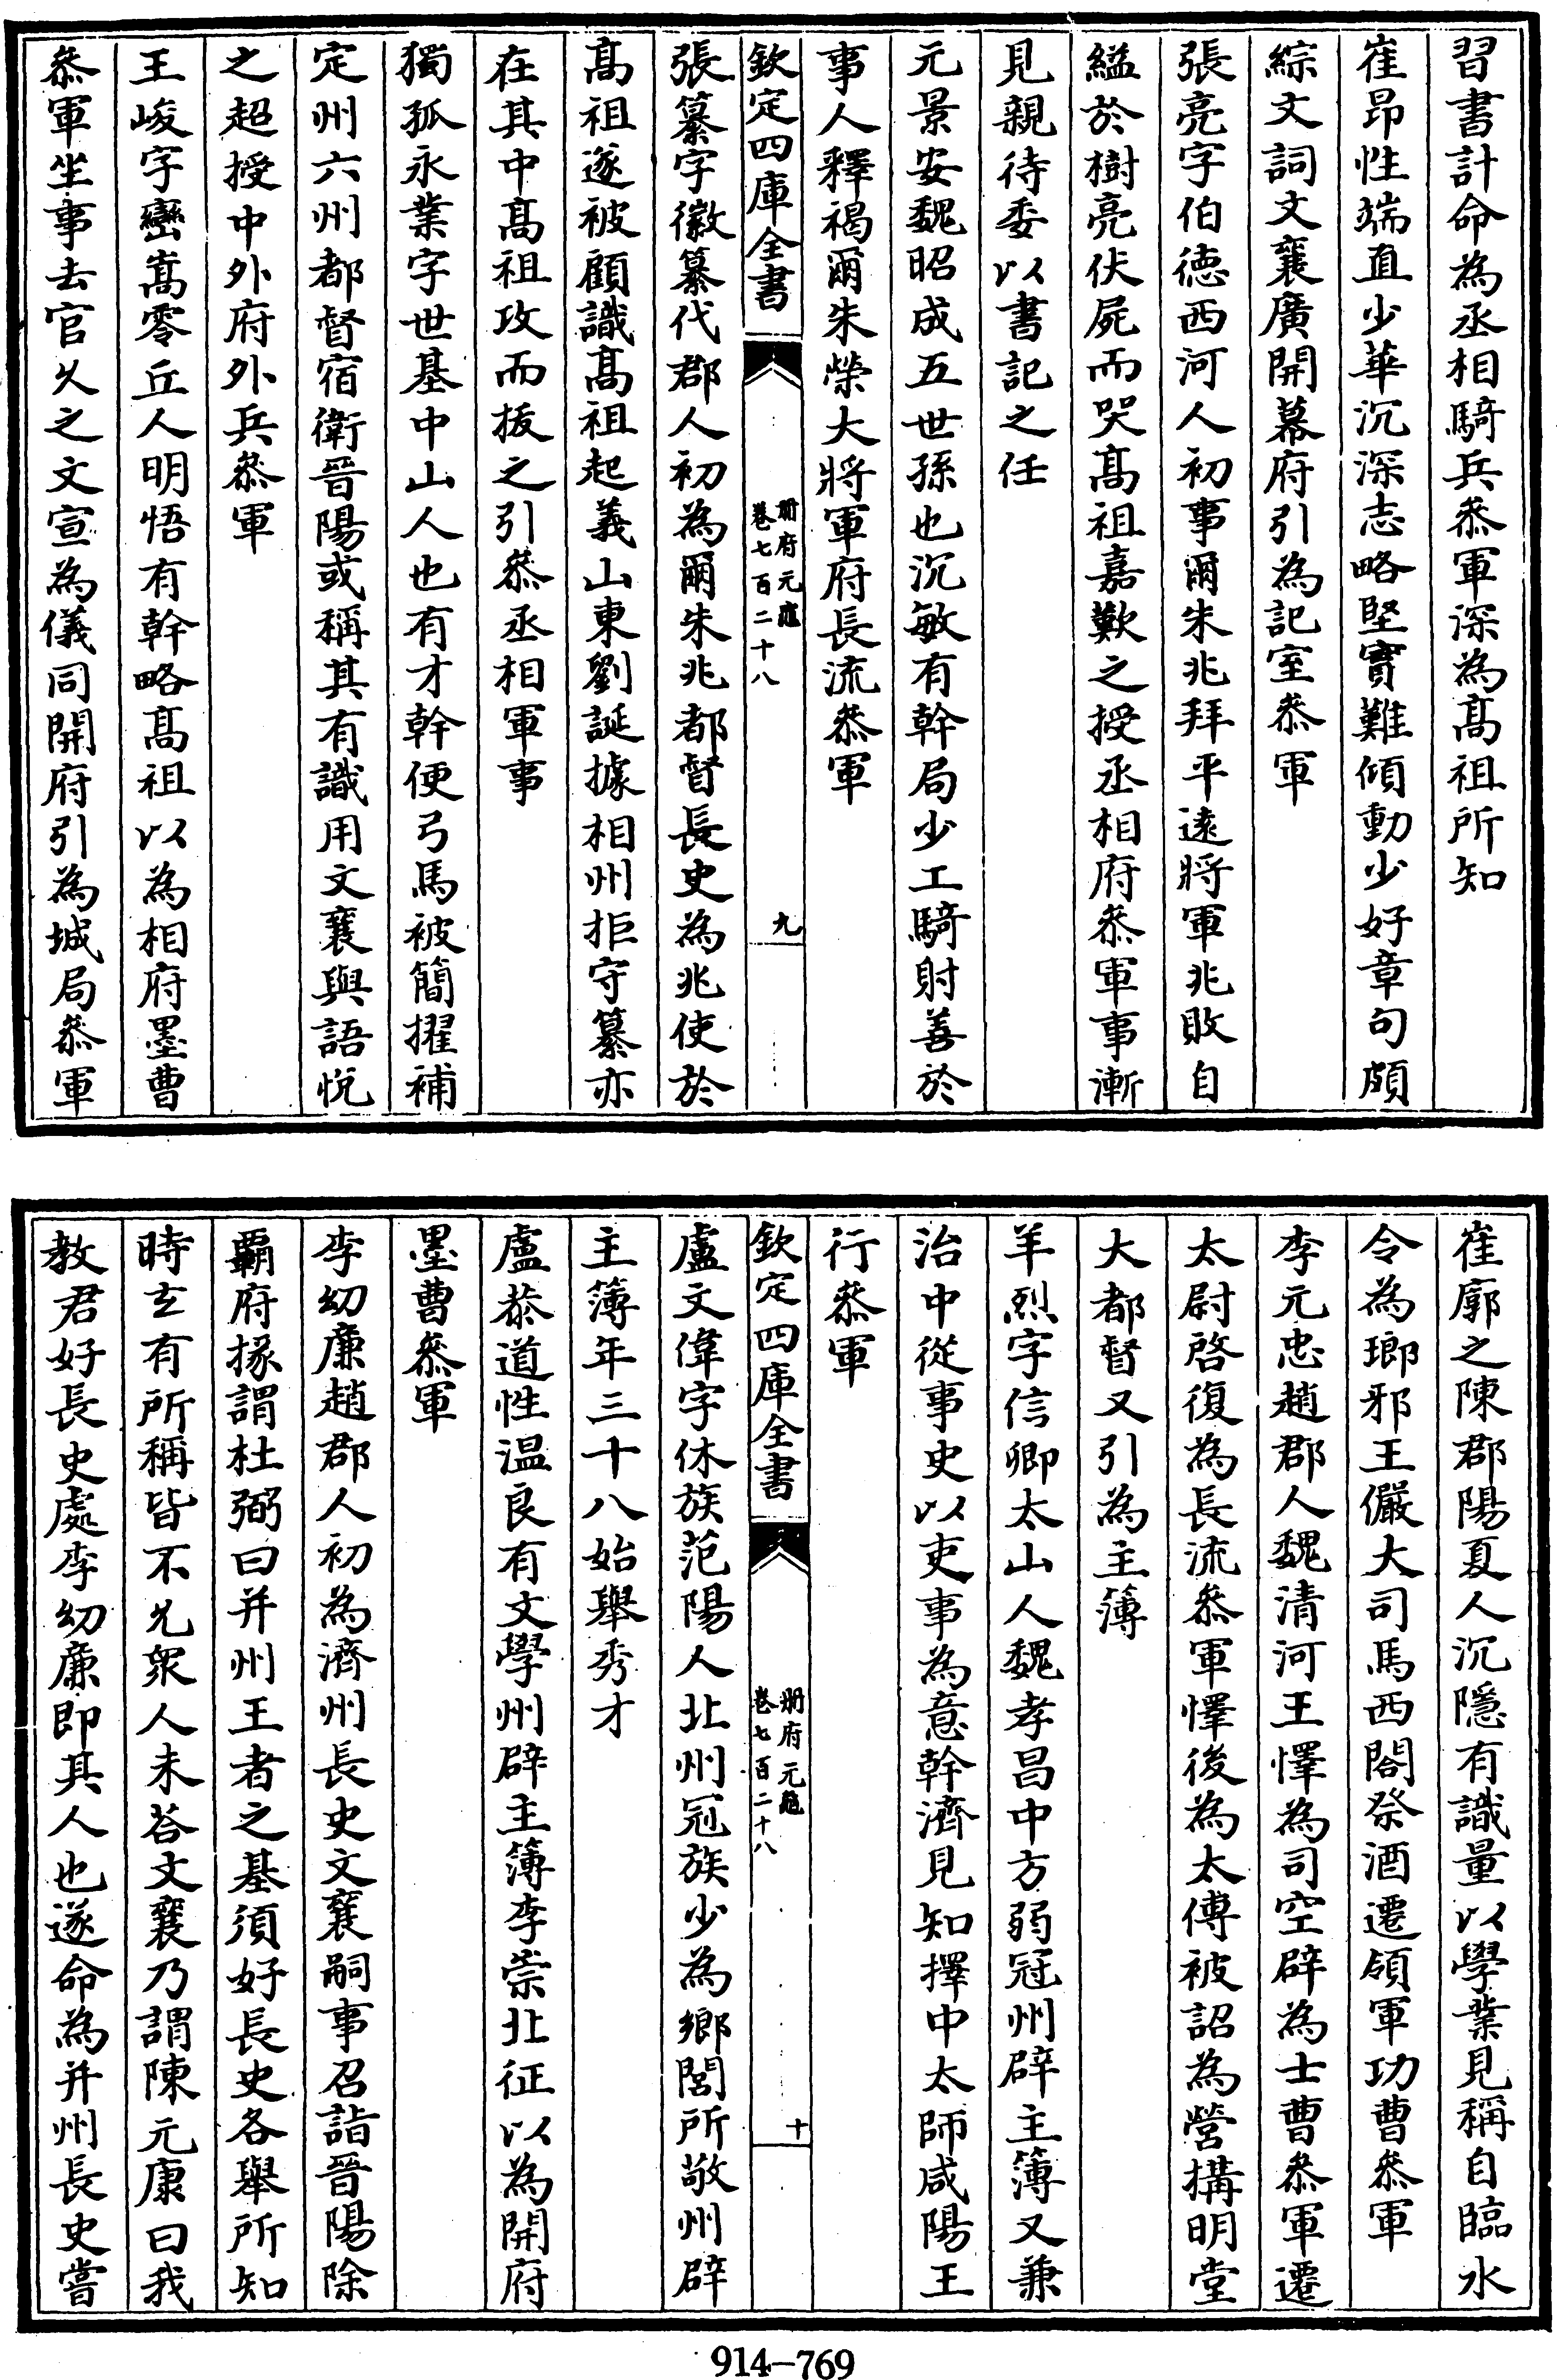 習書計命為丞相騎兵叅軍深為髙祖所知
崔昂性端直少華沉深志略堅實難傾動少好章句頗
綜文詞文襄廣開幕府引為記室叅軍
張亮字伯徳西河人初事爾朱兆拜平逺將軍兆敗自
縊於樹亮伏屍而哭髙祖嘉歎之授丞相府叅軍事漸
見親待委以書記之任
元景安魏昭成五世孫也沉敏有幹局少工騎射善於
事人釋褐爾朱榮大將軍府長流叅軍
欽定四庫全書
冊府元龜
卷七百二十八
九
張纂字徽纂代郡人初為爾朱兆都督長史為兆使於
髙祖遂被顧識髙祖起義山東劉誕據相州拒守纂亦
在其中髙祖攻而拔之引叅丞相軍事
獨孤永業字世基中山人也有才幹便弓馬被簡擢補
定州六州都督宿衛晉陽或稱其有識用文襄與語悦
之超授中外府外兵叅軍
王峻字巒嵩零丘人明悟有幹略髙祖以為相府墨曹
叅軍坐事去官乆之文宣為儀同開府引為城局叅軍
崔廓之陳郡陽夏人沉隱有識量以學業見稱自臨水
令為瑯邪王儼大司馬西閤祭酒遷領軍功曹叅軍
李元忠趙郡人魏清河王懌為司空辟為士曹叅軍遷
太尉啓復為長流叅軍懌後為太傅被詔為營構明堂
大都督又引為主簿
羊烈字信卿太山人魏孝昌中方弱冠州辟主簿又兼
治中從事史以吏事為意幹濟見知擇中太師咸陽王
行叅軍
欽定四庫全書
冊府元龜
卷七百二十八
十
盧文偉字休族范陽人北州冠族少為鄉閭所敬州辟
主簿年三十八始舉秀才
盧恭道性温良有文學州辟主簿李崇北征以為開府
墨曹叅軍
李幼廉趙郡人初為濟州長史文襄嗣事召詣晉陽除
霸府掾謂杜弼曰并州王者之基須好長史各舉所知
時玄有所稱皆不允衆人未荅文襄乃謂陳元康曰我
教君好長史處李幼廉即其人也遂命為并州長史嘗
914-769